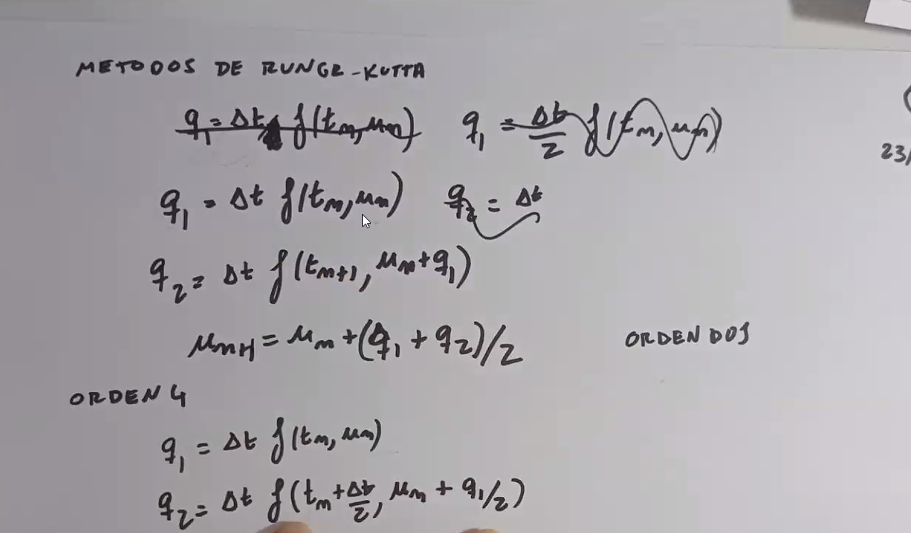 METODOS DE RUNGE-KUTTA
q₁ = Δt f(tₙ, uₙ) q₁ = Δt/2 f(tₙ, uₙ)
23/
q₁ = Δt f(tₙ, uₙ) q₂ = Δt
q₂ = Δt f(tₙ₊₁, uₙ + q₁)
uₙ₊₁ = uₙ + (q₁ + q₂)/2 ORDEN DOS
ORDEN 4
q₁ = Δt f(tₙ, uₙ)
q₂ = Δt f(tₙ + Δt/2, uₙ + q₁/2)